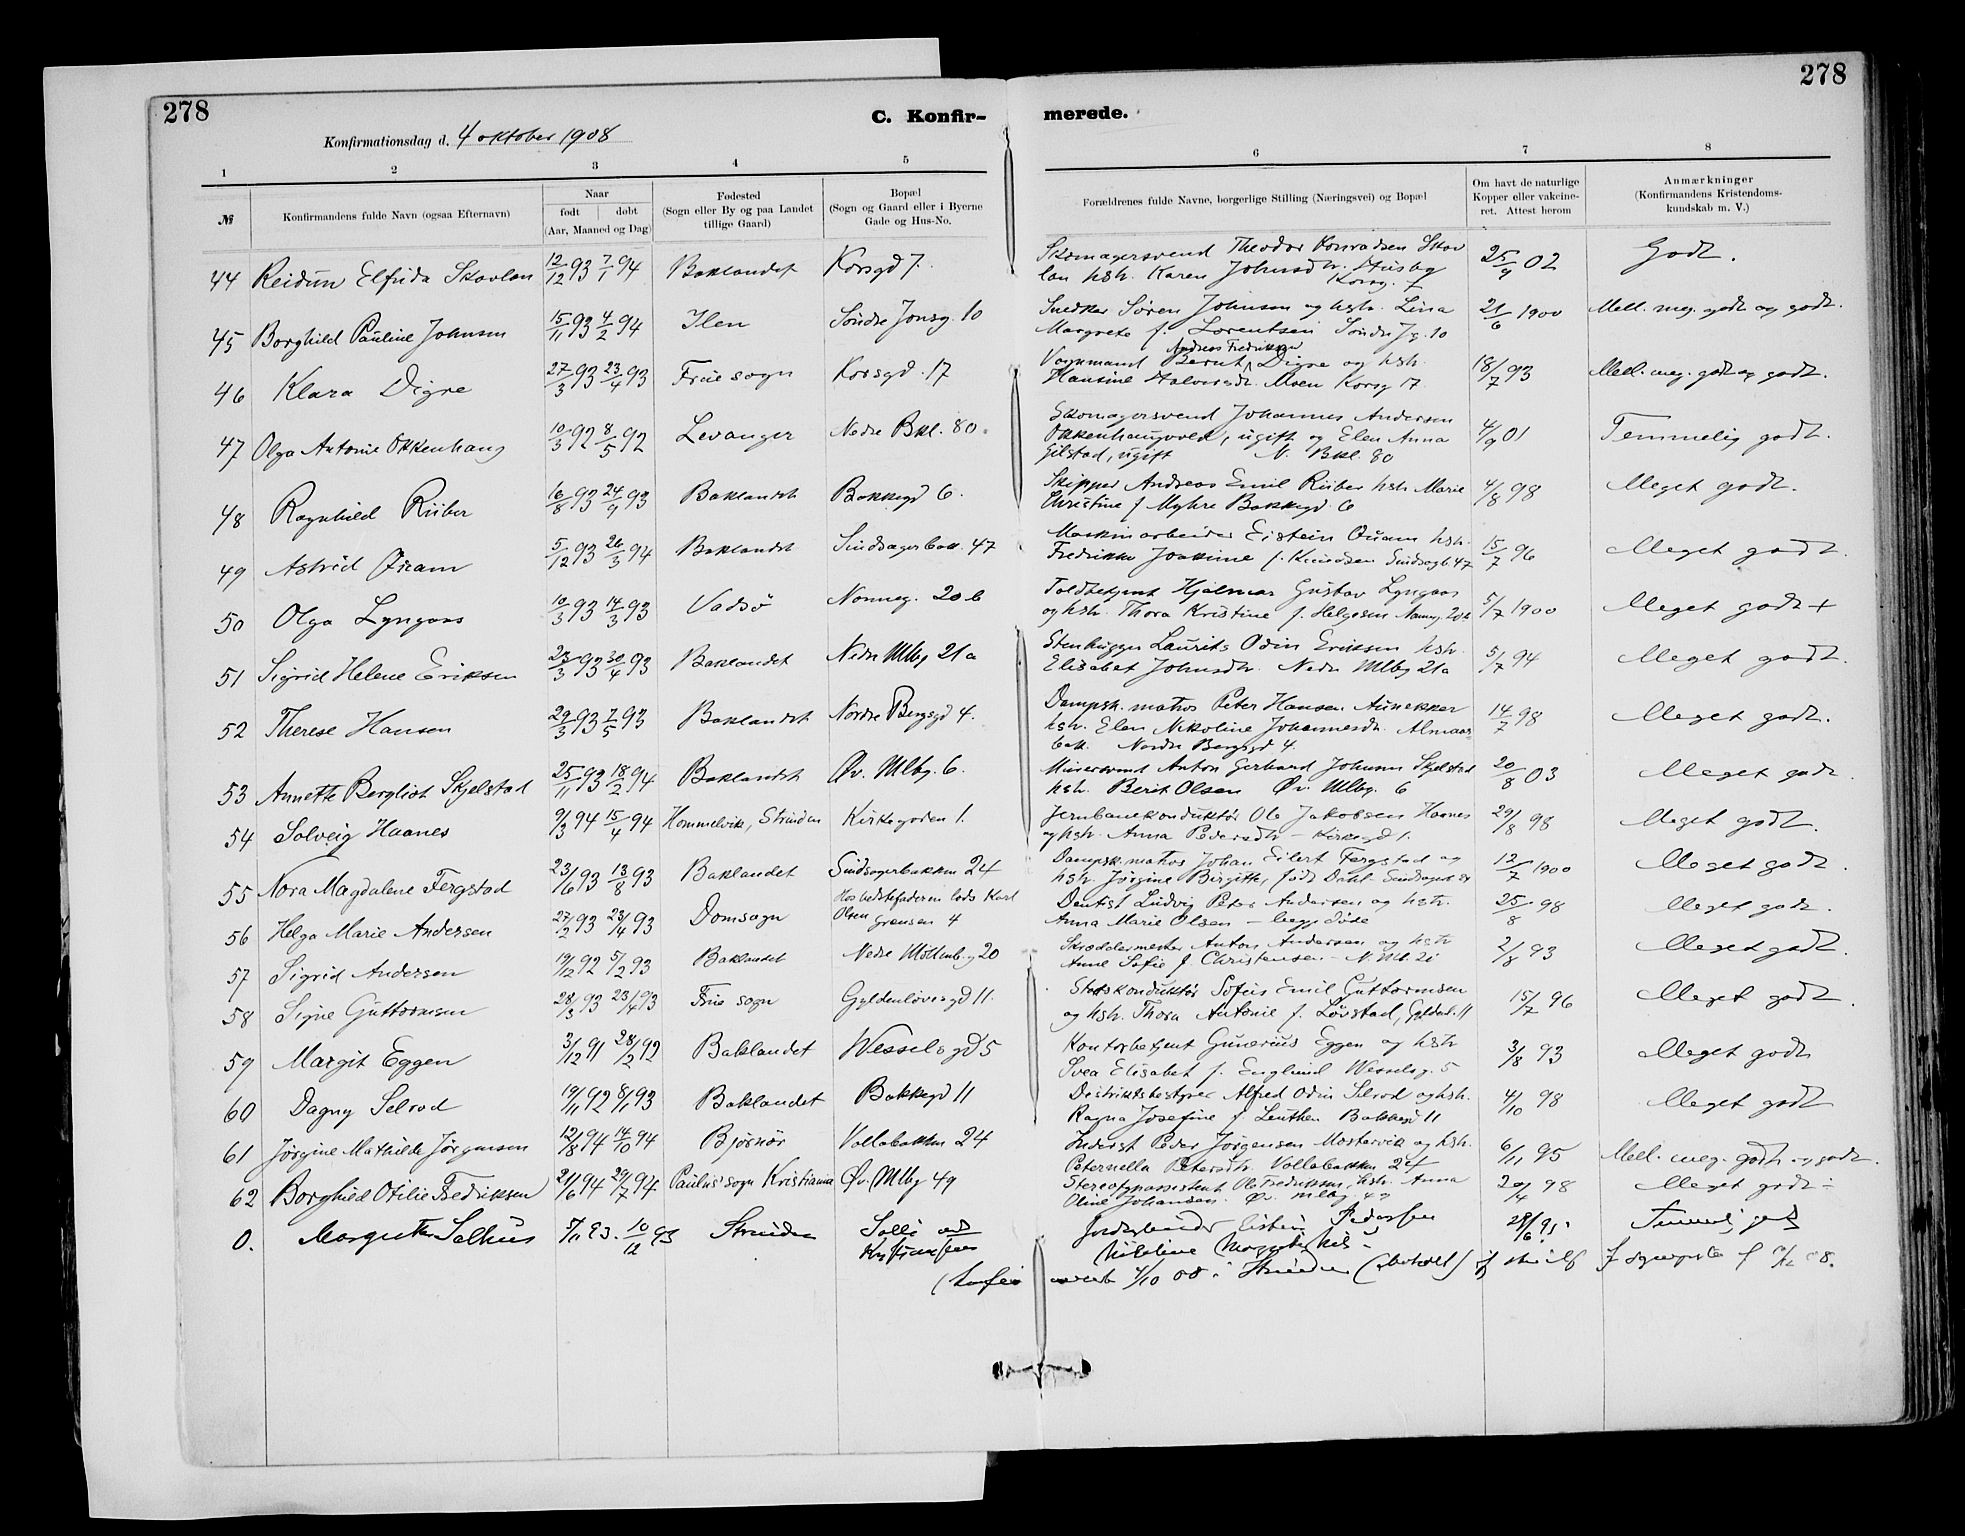 278
278
C. Konfir-
merede.
Konfirmationsdag d. 4 oktober 1908
1 2 3 4 5 6 7 8
№
Konfirmandens fulde Navn (ogsaa Efternavn)
Naar
født døbt
(Aar, Maaned og Dag)
Fødested
(Sogn eller By og paa Landet
tillige Gaard)
Bopæl
(Sogn og Gaard eller i Byerne
Gade og Hus-No.
Forældrenes fulde Navne, borgerlige Stilling (Næringsvei) og Bopæl
Om havt de naturlige
Kopper eller vakcine-
ret. Attest herom
Anmærkninger
(Konfirmandens Kristendoms-
kundskab m. V.)
44 Reidun Elfrida Skavlan 12/12 93 7/1 94 Baklandet Korsgd 7. Skomagersvend Theodor Konradsen Skav
lan hstr. Karen Johnsdtr. Husby 25/9 02 Godt.
Korsg. 7
45 Borghild Pauline Johnsen 15/11 93 4/2 94 Ilen Søndre Jonsg. 10 Snedker Søren Johnsen og hstr. Lina 21/6 1900 Mell. meg. godt og godt.
Margrete f. Lorentsen Søndre Jg. 10
46 Klara Digre 27/3 93 23/4 93 Frue sogn Korsgd. 17 Vognmand Bernt Andreas Fredriksen Digre og hstr. 18/7 93 Mell. meg. godt og godt.
Hansine Halvorsdtr. Moen Korsg 17
47 Olga Antonie Okkenhaug 10/3 92 8/5 92 Levanger Nedre Bkl. 80. Skomagersvend Johannes Andersen
Okkenhaugvold, ugift og Elen Anna 4/9 01 Temmelig godt.
Gilstad, ugift N. Bkl. 80
48 Ragnhild Riiber 16/8 93 24/9 93 Baklandet Bakkegd 6. Skipper Andreas Emil Riiber hstr Marie 4/8 98 Meget godt.
Christine f Myhre Bakkegd. 6
49 Astrid Qvam 5/12 93 26/3 94 Baklandet Sindsagerbak. 47 Maskinarbeider Eistein Qvam hstr.
Fredrikke Joakime f. Knudsen Sindsagb 47 15/7 96 Meget godt.
50 Olga Lyngaas 10/3 93 14/3 93 Vadsø Nonneg. 20 b Toldbetjent Hjalmar Gustav Lyngaas
og hstr. Thora Kristine f. Helgesen Nonneg. 20 b 5/7 1900 Meget godt +
51 Sigrid Helene Eriksen 23/3 93 30/4 93 Baklandet Nedre Mlbg 21a Stenhugger Laurits Odin Eriksen hstr.
Elisabet Johnsdtr. Nedre Mlbg 21a 5/7 94 Meget godt.
52 Therese Hansen 29/3 93 7/5 93 Baklandet Nordre Bergsgd 4. Dampsk. matros Peter Hansen Aunekker
hstr. Elen Nikoline Johannesdtr. Almaas- 14/7 98 Meget godt.
bak. Nordre Bergsgd 4.
53 Annette Bergliot Skjelstad 25/11 93 18/2 94 Baklandet Øv. Mlbg. 6. Murersvend Anton Gerhard Johnsen Skjelstad
hstr. Berit Olsen Øv. Mlbg. 6 20/8 03 Meget godt.
54 Solveig Haanes 9/3 94 15/4 94 Hommelvik, Strinden Kirkegaden 1. Jernbanekonduktør Ole Jakobsen Haanes
og hstr. Anna Pedersdtr – Kirkegd 1. 29/8 98 Meget godt.
55 Nora Magdalene Fergstad 23/6 93 13/8 93 Baklandet Sindsagerbakken 24 Dampsk. matros Johan Eilert Fergstad og
hstr. Jørgine Birgitte, født Dahl 12/7 1900 Meget godt.
56 Helga Marie Andersen 27/2 93 23/4 93 Domsogn Hos bedstefaderen lods Karl
Olsen Grensen 4 Dentist Ludvig Peter Andersen og hstr.
Anna Marie Olsen – begge døde 25/8 98 Meget godt.
57 Sigrid Andersen 19/12 92 5/2 93 Baklandet Nedre Møllenbg 20 Skræddermester Anton Andersen og hstr
Anne Sofie f. Christensen – N. Mlb. 20 2/8 93 Meget godt.
58 Signe Guttormsen 28/3 93 23/4 93 Frue sogn Gyldenløvesgd 11. Statskonduktør Sofus Emil Guttormsen
og hstr. Thora Antonie f. Løvstad, Gyldenl. 11 15/7 96 Meget godt.
59 Margit Eggen 3/12 91 28/2 92 Baklandet Wesselsgd 5 Kontorbetjent Gunerius Eggen og hstr
Svea Elisabet f. Englund Wesselsg. 5 3/8 93 Meget godt
60 Dagny Selvod 19/11 92 8/1 93 Baklandet Bakkegd 11 Distriktsbestyrer Alfred Odin Selvod og hstr.
Ragna Josefine f. Leuthen Bakkegd 11 4/10 98 Meget godt
61 Jørgine Mathilde Jørgensen 12/8 94 14/10 94 Bjørnør Vollabakken 24 Inderst Peder Jørgensen Mostervik og hstr.
Peternella Petersdtr. Vollabakken 24 6/11 95 Mell. meg. godt og godt.
62 Borghild Otilie Fredriksen 21/6 94 29/7 94 Paulus' sogn Kristiania Øv. Mlbg 49 Ole Fredriksen, hstr. Anna
Oline Johansen. Øv. Mlbg. 49 20/4 98 Meget godt –
0. Margrethe Solhus 5/11 93. 10/12 93 Strinden Pedersen
i Strinden